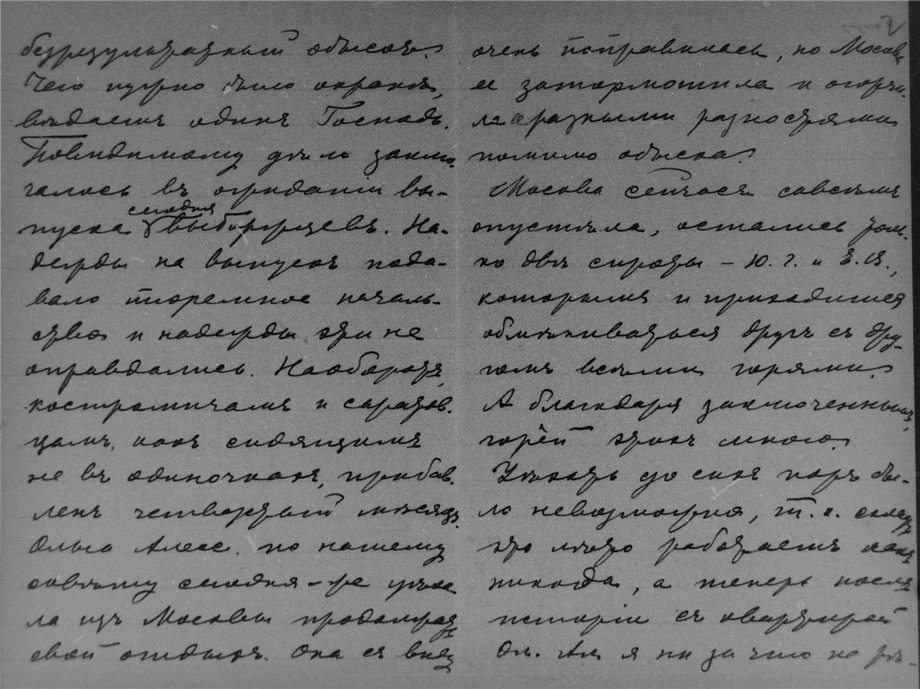 безрезультатный обыск.
Чего нужно было охране,
вѣдаетъ одинъ Господь.
Повидимому дѣло заклю-
чалось въ ожиданіи вы-
пуска сегодня выборжцевъ. На-
дежды на выпускъ пода-
вало тюремное началь-
ство и надежды эти не
оправдались. Наоборотъ,
костромичамъ и саратов-
цамъ, какъ сидящимъ
не въ одиночкахъ, прибав-
ленъ четвертый мѣсяцъ.
Ольга Алекс. по нашему
совѣту сегодня-же уѣха
ла изъ Москвы продолжать
свой отдыхъ. Она съ виду
очень поправилась, но Москва
ее затормошила и огорчи-
ла разными разностями
помимо обыска.
Москва сейчасъ совсѣмъ
опустѣла, остались толь-
ко двѣ сироты – Ю. Г. и Е. В.,
которымъ и приходится
обмѣниваться другъ съ дру-
гомъ всѣми горями.
А благодаря заключеннымъ,
горей этихъ много.
Уѣхать до сихъ поръ бы-
ло невозможно, т. к.
это лѣто работаетъ какъ
никогда, а теперь послѣ
исторіи съ квартирой
Ол. Ал. я ни за что не рѣ-